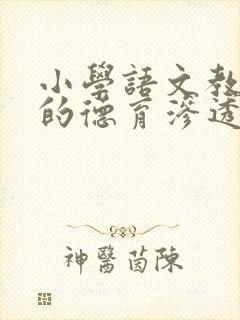 小學語文教
的德育滲透
神醫茵陳